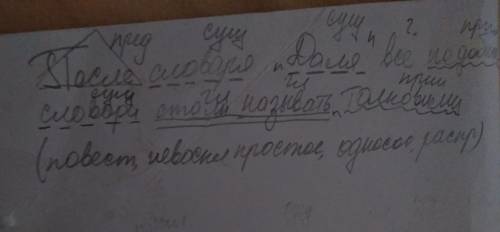 пред сущ сущ г. при
После словаря „Даля" все подоб
сущ гл гл прил
словари стали называть толковыми
(повест, невоскл простое, односос, распр)